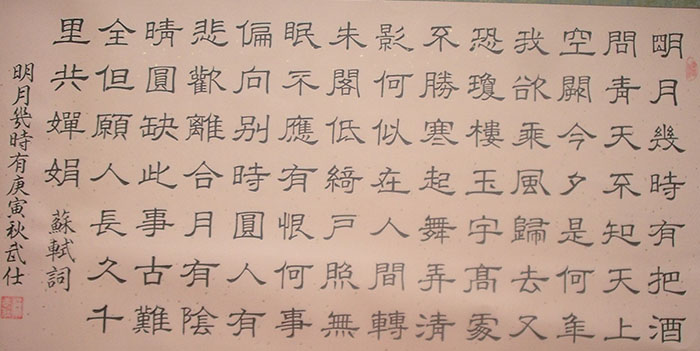 明月幾時有把酒
問青天不知天上
空闕今夕是何年
我欲乘風歸去又
恐瓊樓玉宇高處
不勝寒起舞弄清
影何似在人間轉
朱閣低綺戶照無
眠不應有恨何事
偏向别時圓人有
悲歡離合月有陰
晴圓缺此事古難
全但願人長久千
里共嬋娟 蘇軾詞
明月幾時有庚寅秋武仕